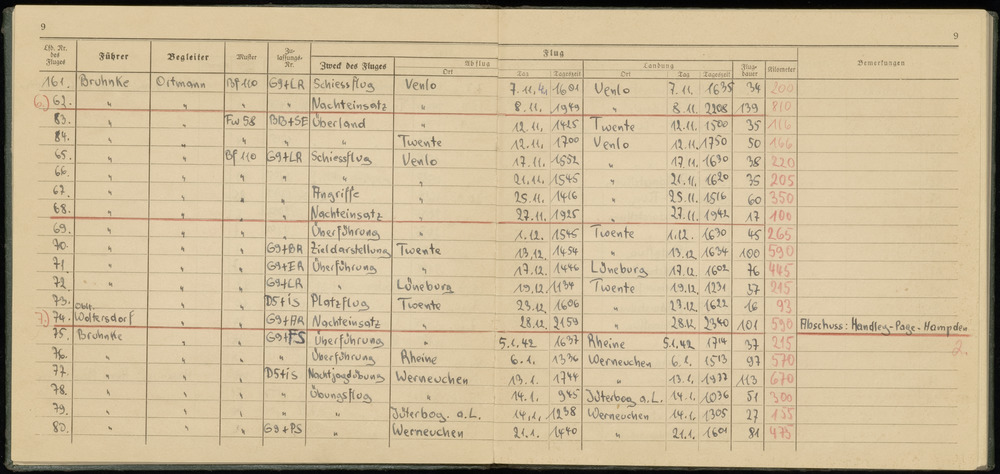 9
9
Lfd. Nr. des Fluges Führer Begleiter Muster Zulassungs-Nr. Zweck des Fluges Flug Bemerkungen
Abflug Landung Flugdauer Kilometer
Ort Tag Tageszeit Ort Tag Tageszeit
161. Bruhnke Ortmann Bf 110 G9+LR Schiessflug Venlo 7.11.41 1601 Venlo 7.11. 1635 34 200
6.) 62. " " " " Nachteinsatz " 8.11. 1949 " 8.11. 2208 139 810
83. " " Fw 58 BB+SE Überland " 12.11. 1425 Twente 12.11. 1500 35 116
84. " " " " " Twente 12.11. 1700 Venlo 12.11. 1750 50 166
65. " " Bf 110 G9+LR Schiessflug Venlo 17.11. 1552 " 17.11. 1630 38 220
66. " " " " " " 21.11. 1545 " 21.11. 1620 35 205
67. " " " " Angriffe " 25.11. 1416 " 25.11. 1516 60 350
68. " " " " Nachteinsatz " 27.11. 1925 " 27.11. 1942 17 100
69. " " " " Überführung " 1.12. 1545 Twente 1.12. 1630 45 265
70. " " " G9+BR Zieldarstellung Twente 13.12. 1454 " 13.12. 1634 100 590
71. " " " G9+ER Überführung " 17.12. 1446 Lüneburg 17.12. 1602 76 445
72. " " " G9+LR " Lüneburg 19.12. 1134 Twente 19.12. 1231 57 215
73. " " " D5+iS Platzflug Twente 23.12. 1606 " 23.12. 1622 16 93
7.) 74. Oblt. Woltersdorf " " G9+AR Nachteinsatz " 28.12. 2159 " 28.12. 2340 101 590 Abschuss: Handley-Page-Hampden
75. Bruhnke " " G9+FS Überführung " 5.1.42 1637 Rheine 5.1.42 1714 37 215 2.
76. " " " " Überführung Rheine 6.1. 1336 Werneuchen 6.1. 1513 97 570
77. " " " D5+iS Nachtjagdübung Werneuchen 13.1. 1744 " 13.1. 1937 113 670
78. " " " " Übungsflug " 14.1. 945 Jüterbog a.L. 14.1. 1036 51 300
79. " " " " " Jüterbog. a.L. 14.1. 1238 Werneuchen 14.1. 1305 27 155
80. " " " G9+PS " Werneuchen 21.1. 1440 " 21.1. 1601 81 475